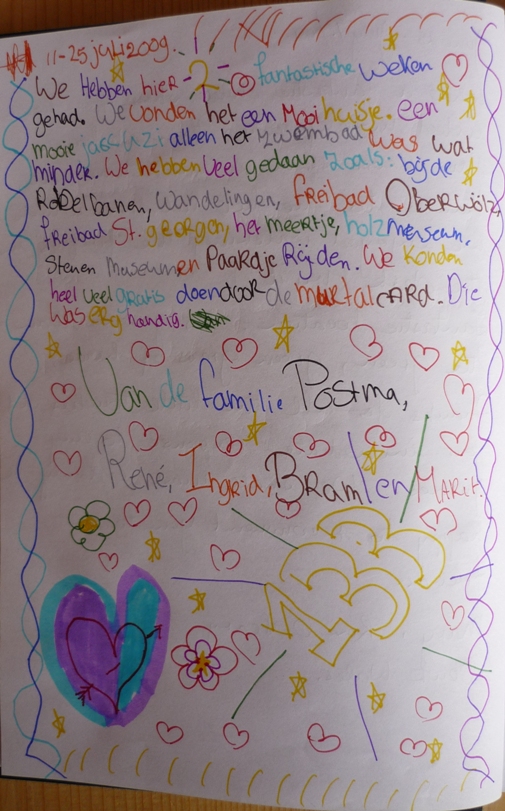 11-25 juli 2009.
We Hebben hier 2 fantastische weken
gehad. We vonden het een Mooi huisje. een
mooie jaccuzi alleen het zwembad was wat
minder. We hebben veel gedaan zoals: bij de
Rodelbanen, Wandelingen, freibad Oberwölz,
freibad St. georgen, het meertje, holzmenseum,
Stenen Museumen Paardje Rijden. We konden
heel veel gratis doen door de murtalCARD. Die
was erg handig.
Van de familie Postma,
René, Ingrid, Bram en Marit.